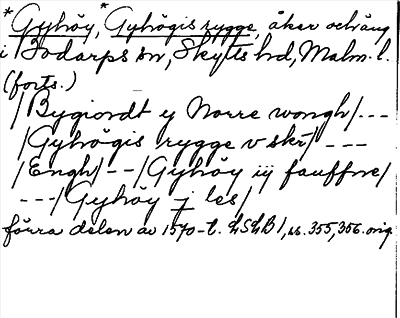 *Gyhöy, *Gyhögis rygge, åker och äng
i Bodarps sn, Skytts hd, Malm. l.
(forts.)
/Bygiordt y Norre wongh/---
/Gyhögis rygge v skr/ ---
/Engh/--/Gyhöy iij fauffne/
---/Gyhöy j les/
förra delen av 1570-t. LSLB 1, ss. 355, 356. orig.